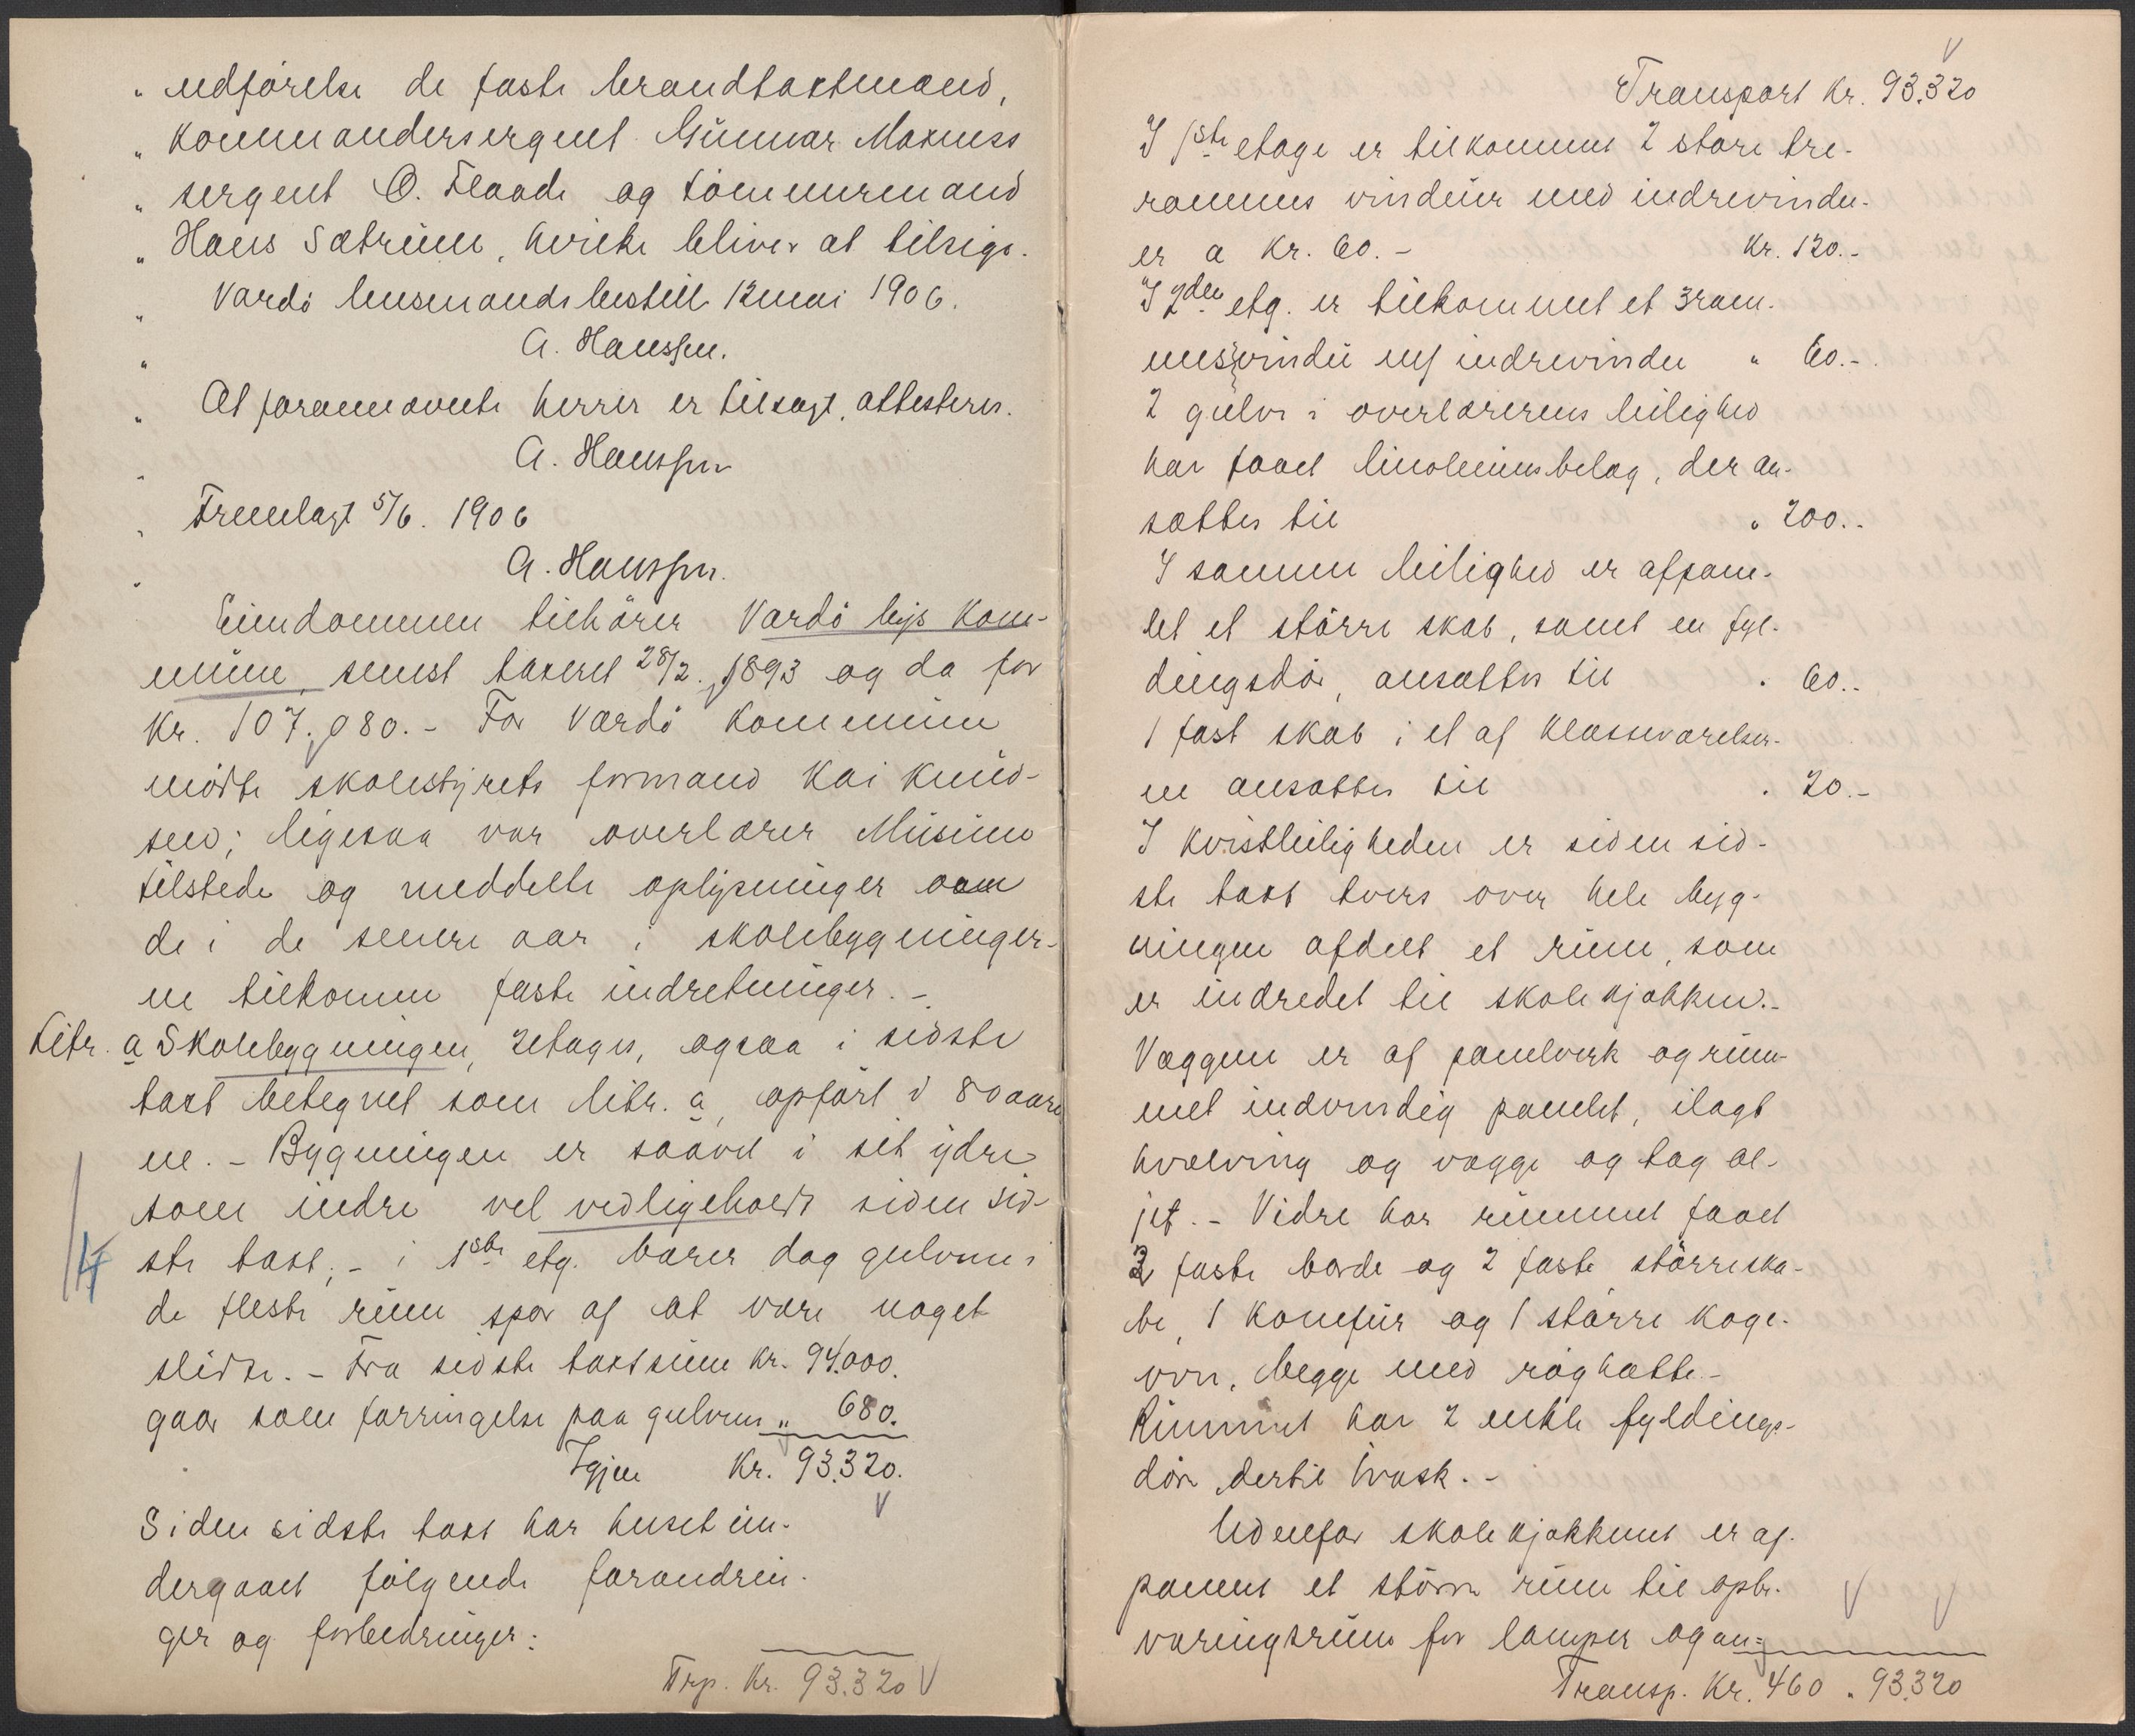 " udførelse de faste brandtaxtmænd,
" kommandersergent Gunnar Maxness
" sergent O. Flaade og tømmermand
" Hans Sætrum, hvilke bliver at tilsige.
" Vardø lensmandsbestill 12 mai 1906.
" A. Hanssen.
" At forannævnte herrer er tilsagt, attesteres.
" A. Hanssen
" Fremlagt 5/6. 1906
" A. Hanssen.
Eiendommen tilhører Vardø bys kom-
mune, senest taxeret 28/2. 1893 og da for
Kr. 107.080.- For Vardø kommune
mødte skolestyrets formand Kai Knud-
sen; ligesaa var overlærer Musum
tilstede og meddelte oplysninger om
de i de senere aar i skolebygninger-
ne tilkomne faste indretninger. -
Litr. a Skolebygningen, 2etages, ogsaa i sidste
taxt betegnet som litr. a, opført i 80aare
ne. - Bygningen er saavel i sit ydre
som indre vel vedligeholdt siden sid-
ste taxt; - i 1ste etg. bærer dog gulvene i
de fleste rum spor af at være noget
slidte. - Fra sidste taxtsum Kr. 94.000.
gaar som forringelse paa gulvene " 680.
Igjen Kr. 93.320.
Siden sidste taxt har huset un-
dergaaet følgende forandrin-
ger og forbedringer:
Trp. Kr. 93.320
Transport Kr. 93.320
I 1ste etage er tilkommet 2 store tre-
rammes vinduer med indrevindu-
er a Kr. 60.- Kr. 120.-
I 2den etg. er tilkommet et 3ram-
mes vindu m/ indrevindu " 60.-
2 gulve i overlærerens leilighed
har faaet linoleumsbelæg, der an-
sættes til " 200.-
I samme leilighed er afpane-
let et større skab, samt en fyl-
dingsdør, ansættes til " 60.-
1 fast skab i et af klasseværelser-
ne ansættes til " 20.-
I kvistleiligheden er siden sid-
ste taxt tvers over hele byg-
ningen afdelt et rum, som
er indredet til skolekjøkken.-
Væggene er af panelverk og rum-
met indvendig panelet, ilagt
hvælving og vægge og tag ol-
jet. - Videre har rummet faaet
3 faste borde og 2 faste større ska-
be, 1 komfur og 1 større koge-
ovn, begge med røghætte.-
Rummet har 2 enkle fyldings-
døre, dertil vask. -
Udenfor skolekjøkkenet er af-
panelet et større rum til opbe-
varingsrum for lamper og an=
Transp. Kr. 460 " 93.320